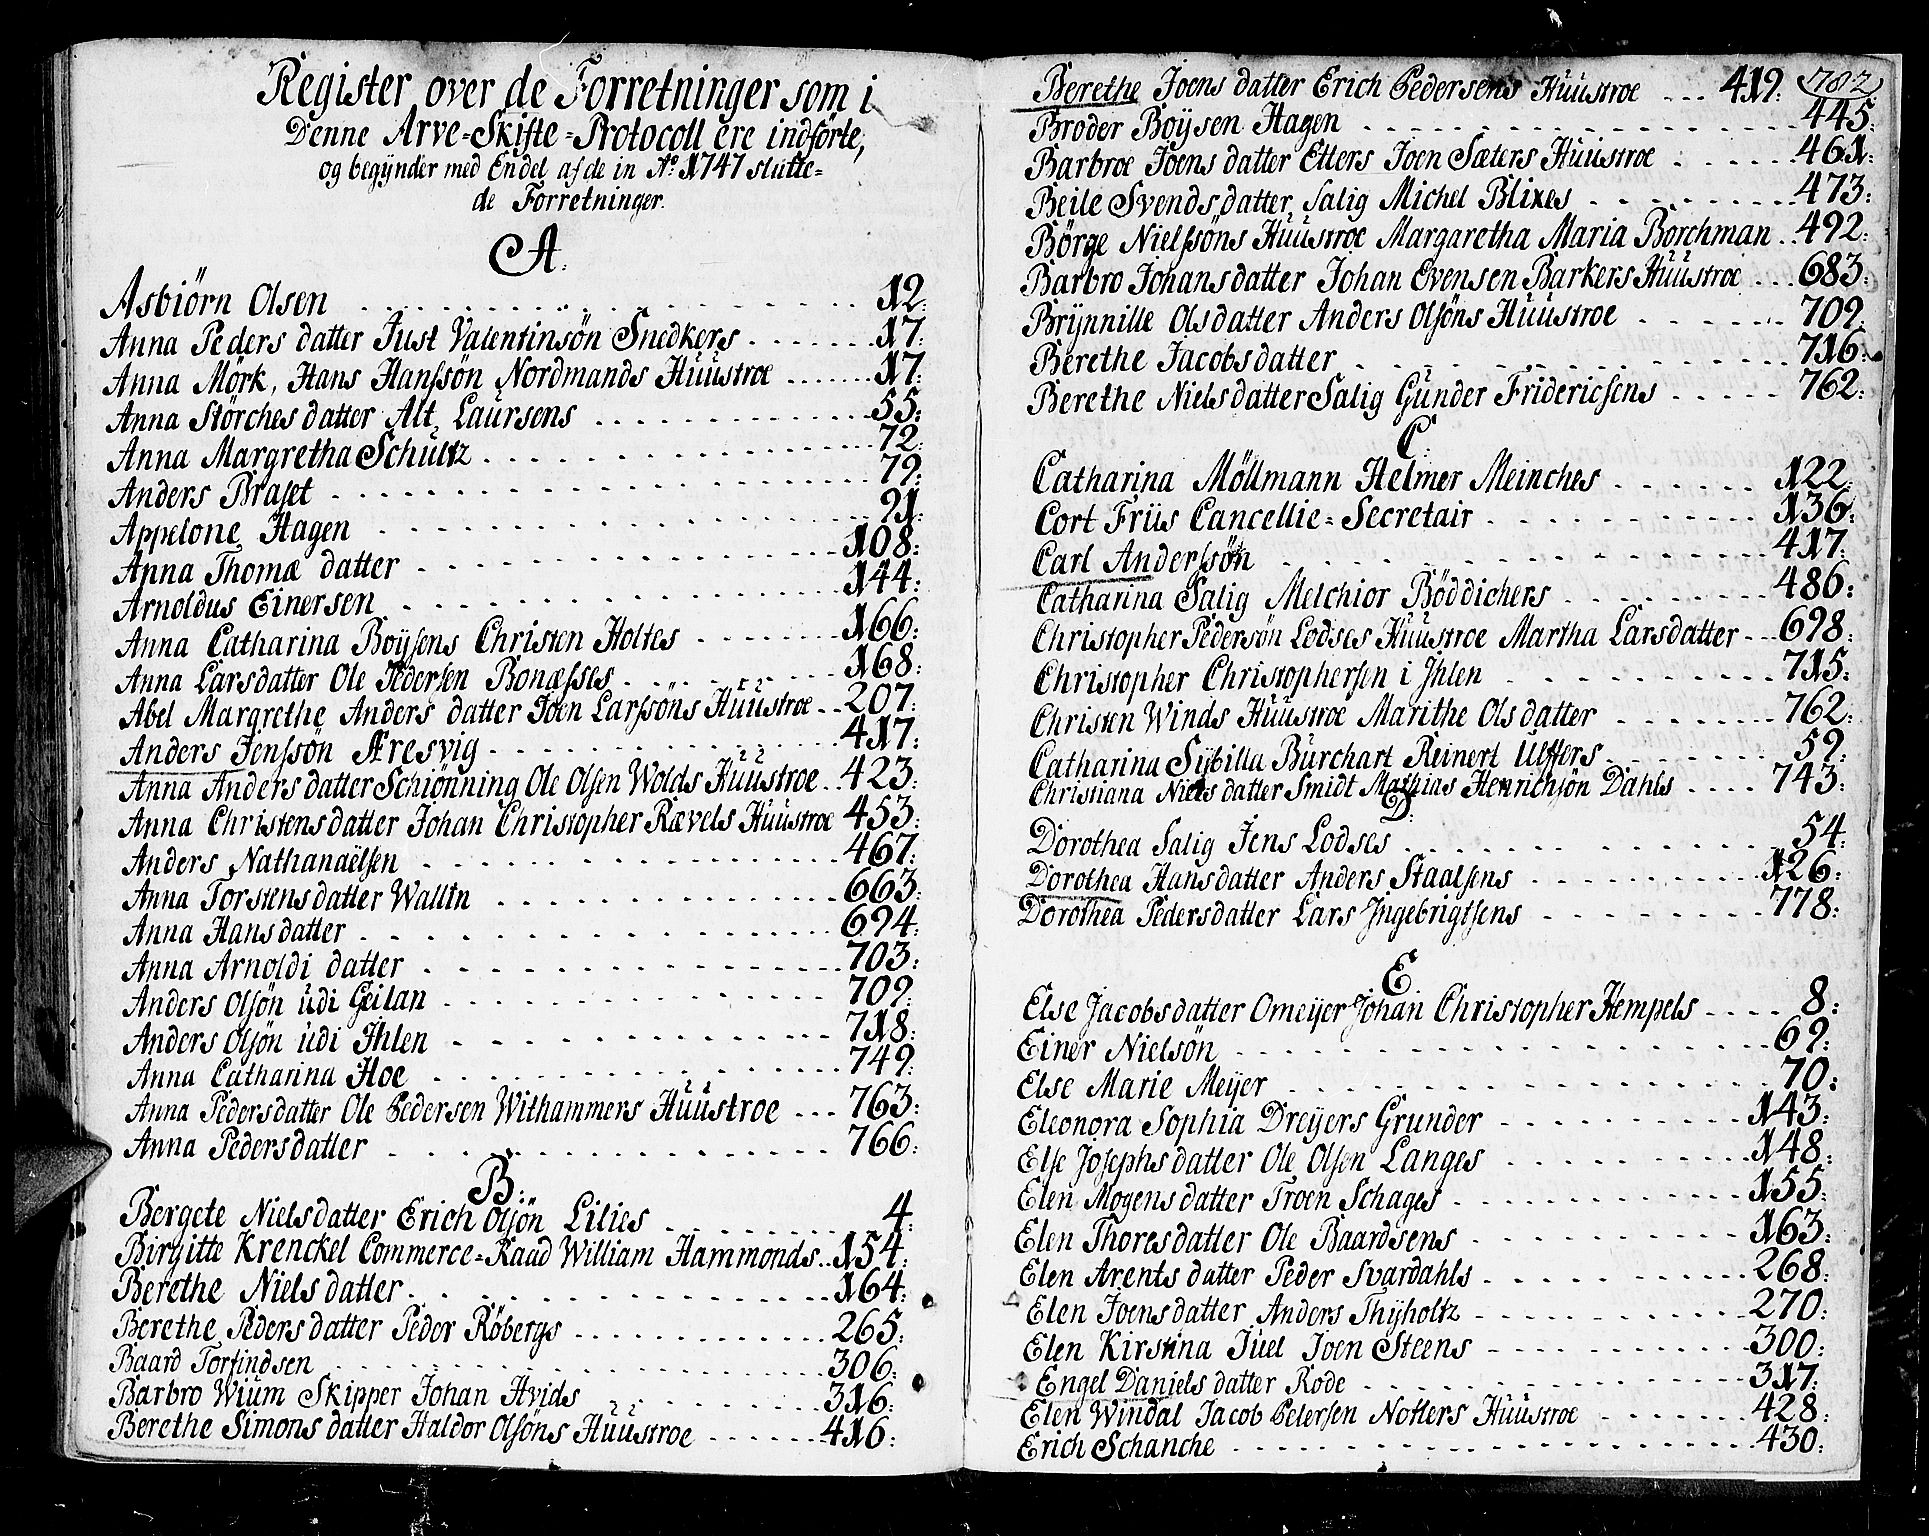 Register over de Forretninger som i
Denne Arve=Skifte=Protocoll ere indförte,
og begÿnder med Endel af de in Aº 1747 slutte=
de Forretninger.
A.
Asbiörn Olsen 12:
Anna Peders datter Just Valentinsön Snedkers 17:
Anna Mörk, Hans Hanssön Nordmands Huustroe 17:
Anna Störches datter Alt. Laursens 55:
Anna Margretha Schultz 72:
Anders Braset 79:
Appelone Hagen 91:
Anna Thomæ datter 108:
Arnoldus Einersen 144:
Anna Catharina Boÿsens Christen Holtes 166:
Anna Larsdatter Ole Pedersen Bonæsses 168:
Abel Margrethe Anders datter Joen Larssöns Huustroe 207:
Anders Jenssön Æresvig 417:
Anna Anders datter Schiönning Ole Olsen Wolds Huustroe 423:
Anna Christensdatter Johan Christopher Rævels Huustroe 453:
Anders Nathanaëlsen 467:
Anna Torstensdatter Wallin 663:
Anna Hansdatter 694:
Anna Arnoldi datter 703:
Anders Olsön udi Geilan 709:
Anders Olsön udi Ihlen 718:
Anna Catharina Hoe 749:
Anna Pedersdatter Ole Pedersen Withammers Huustroe 763:
Anna Pedersdatter 766:
B:
Bergete Nielsdatter Erich Olsön Lilies 4:
Birgitte Krenckel Commerce=Raad William Hammonds 154:
Berethe Niels datter 164:
Berethe Peders datter Peder Röbergs 265:
Baard Torfindsen 306:
Barbro Wium Skipper Johan Hvids 316:
Berethe Simons datter Haldor Olsöns Huustroe 416:
782
Berethe Joens datter Erich Pedersens Huustroe 419:
Broder Boÿsen Hagen 445:
Barbroe Joens datter Etters Joen Sæters Huustroe 461:
Beile Svends datter Salig Michel Blixes 473:
Börge Nielssöns Huustroe Margaretha Maria Borchman 492:
Barbro Johansdatter Johan Evensen Barkers Huustroe 683:
Brÿnnille Olsdatter Anders Olsöns Huustroe 709:
Berethe Jacobsdatter 716:
Berethe Nielsdatter Salig Gunder Fridericsens 762:
C
Catharina Möllmann Helmer Meinches 122:
Cort Friis Cancellie=Secretair 136:
Carl Anderssön 417:
Catharina Salig Melchior Böddichers 486:
Christopher Pedersön Lodses Huustroe Martha Larsdatter 698:
Christopher Christophersen i Ihlen 715:
Christen Winds Huustroe Marithe Olsdatter 762:
Catharina Sÿbilla Burchart Reinert Ulffers 59:
Christiana Niels datter Smidt Mathias Henrichsön Dahls 743:
D:
Dorothea Salig Jens Lodses 54:
Dorothea Hansdatter Anders Staalsens 126:
Dorothea Pedersdatter Lars Ingebrigtsens 778:
E
Else Jacobsdatter Omeÿer Johan Christopher Hempels 8:
Einer Nielsön 69:
Else Marie Meÿer 70:
Eleonora Sophia Dreÿers Grunder 143:
Else Josephs datter Ole Olsen Langes 148:
Elen Mogens datter Troen Schages 155:
Elen Thoresdatter Ole Baardsens 163:
Elen Arents datter Peder Svardahls 268:
Elen Joensdatter Anders Thÿholtz 270:
Elen Kirstina Juel Joen Steens 300:
Engel Daniels datter Rode 317:
Elen Windal Jacob Petersen Notlers Huustroe 428:
Erich Schanche 430: